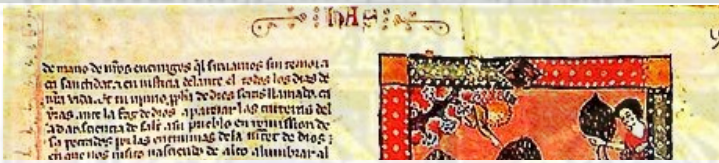 has
de mano de nr̃os enemigos q̃l siruamos sin temor. ⁊
en sanctidat. ⁊ en iusticia delante el todos los dias de
nr̃a vida. Et tu nino, ppħa de dios seras llamado. ca
yras ante la faz de dios aparar las carreras del
⁊ a dar sciencia de salut a su pueblo en remission de
sos peccados por las entrannas de la mercet de dios
en que nos visito nasciendo de alto alumbrar al